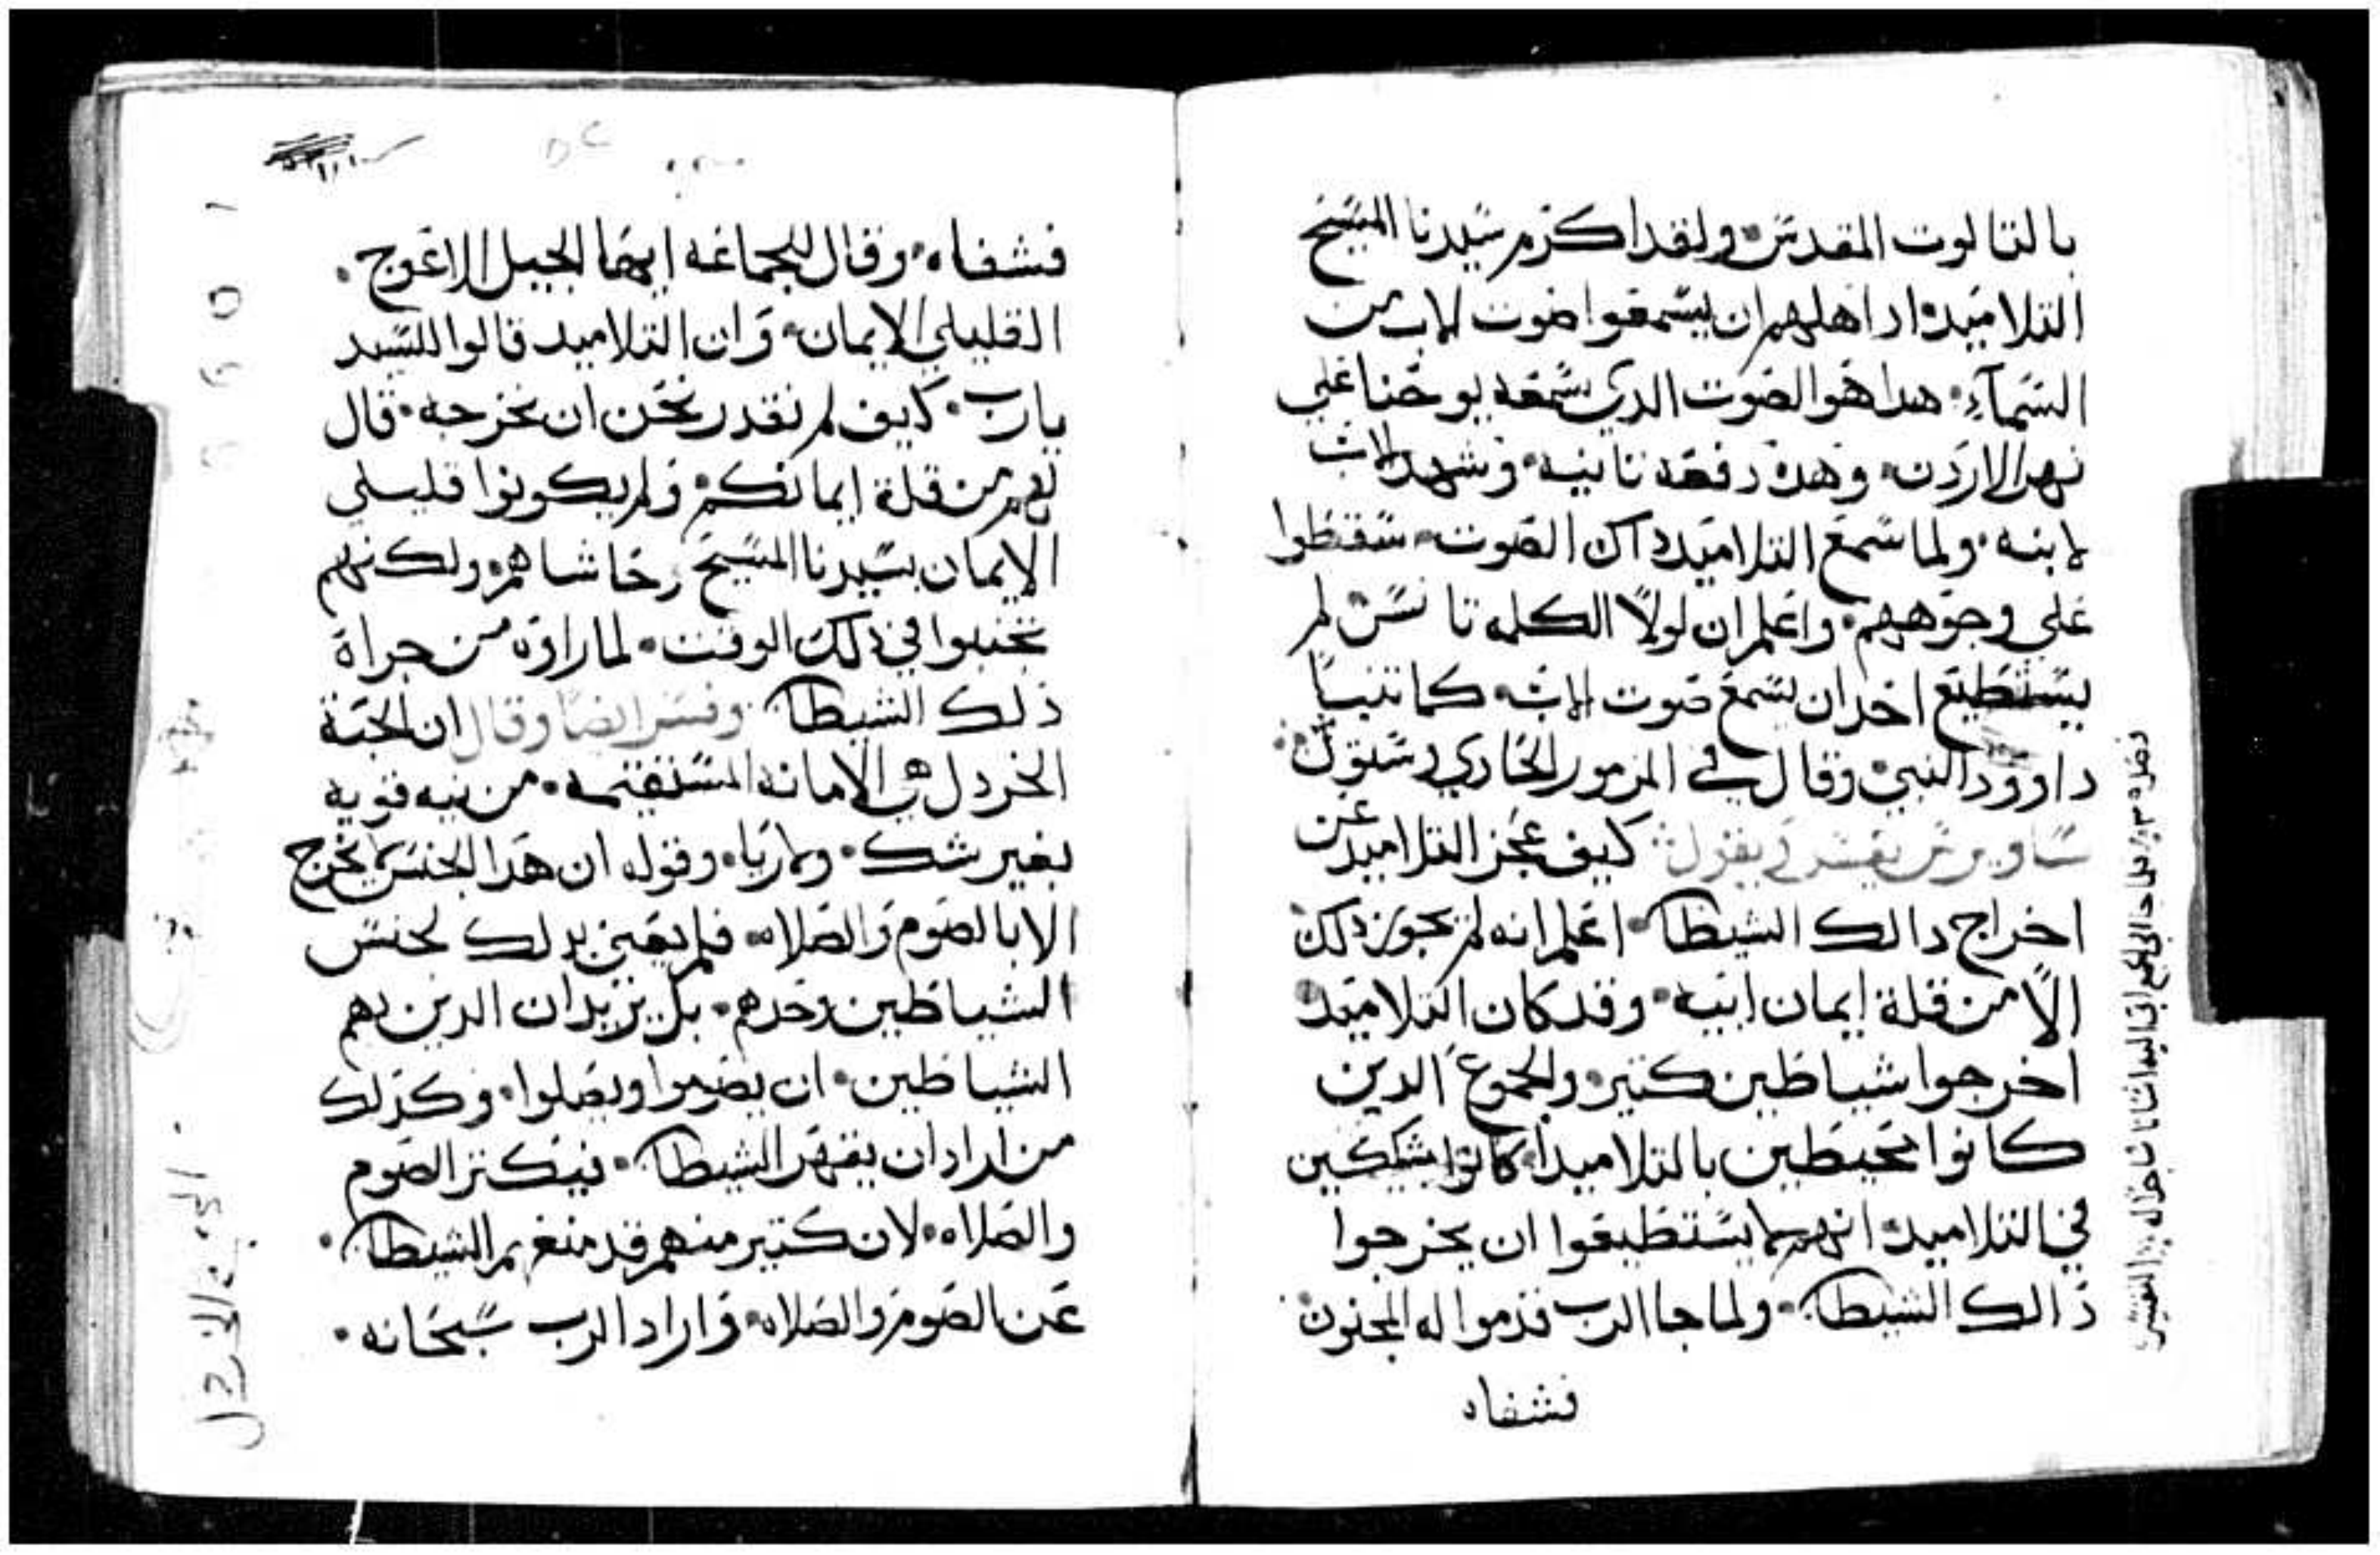 بالتالوت المقدس ولقد اكرم سيدنا المسيح
التلاميد اد اهلهم ان يسمعوا صوت الاب من
السماء هدا هو الصوت الدي سمعه يوحنا علي
نهر الاردن وهده دفعه تانيه وشهد الاب
لابنه ولما سمع التلاميد داك الصوت سقطوا
علي وجوههم واعلم ان لولا الكلمه تانس لم
يستطيع احد ان يسمع صوت الاب كما تنبا
داوود النبي وقال في المزمور الحادي وستون
يفسر يقول كيف عجز التلاميد عن
اخراج دالك الشيطان اعلم انه لم يجوز دلك
الا من قلة ايمان ابيه وقد كان التلاميد
اخرجوا شياطين كتير والجموع الدين
كانوا محيطين بالتلاميد كانوا يشككين
في التلاميد انهم لا يستطيعوا ان يخرجوا
دالك الشيطان ولما جا الرب قدموا له المجنون
فشفاه
فشفاه وقال للجماعه ايها الجيل الاعوج
القليلي الايمان وان التلاميد قالوا للسيد
يارب كيف لم نقدر نحن ان نخرجه قال
لهم من قلة ايمانكم ولم يكونوا قليلي
الايمان بسيدنا المسيح حاشاهم ولكنهم
تجنبوا في دلك الوقت لما راوه من جراة
ذلك الشيطان وفسر ايضا وقال ان الحبة
الخردل هي الامانه المستقيمه من نيه قويه
بغير شك ولا ريا وقوله ان هدا الجنس لا يخرج
الا بالصوم والصلاه فلم يعني بدلك لجنس
الشياطين وحدهم بل يريد ان الدين بهم
الشياطين ان يصوموا ويصلوا وكدلك
من اراد ان يقهر الشيطان فيكتر الصوم
والصلاه لان كتير منهم قد منعهم الشيطان
عن الصوم والصلاه واراد الرب سبحانه